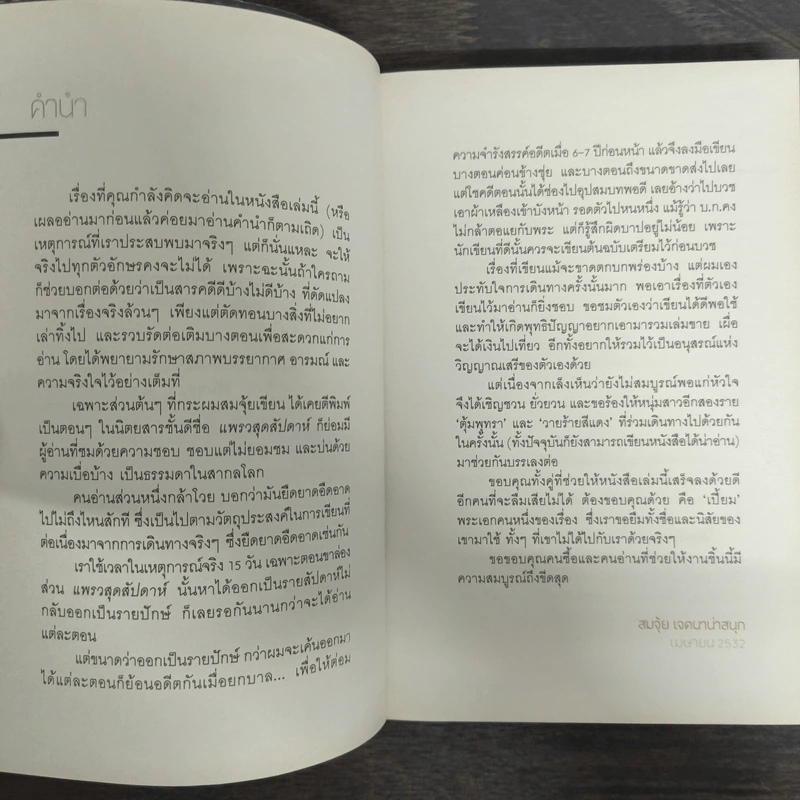 คำนำ
เรื่องที่คุณกำลังคิดจะอ่านในหนังสือเล่มนี้ (หรือ
เผลออ่านมาก่อนแล้วค่อยมาอ่านคำนำก็ตามเถิด) เป็น
เหตุการณ์ที่เราประสบพบมาจริงๆ แต่ก็นั่นแหละ จะให้
จริงไปทุกตัวอักษรคงจะไม่ได้ เพราะฉะนั้นถ้าใครถาม
ก็ช่วยบอกต่อด้วยว่าเป็นสารคดีดีบ้างไม่ดีบ้าง ที่ดัดแปลง
มาจากเรื่องจริงล้วนๆ เพียงแต่ตัดทอนบางสิ่งที่ไม่อยาก
เล่าทิ้งไป และรวบรัดต่อเติมบางตอนเพื่อสะดวกแก่การ
อ่าน โดยได้พยายามรักษาสภาพบรรยากาศ อารมณ์ และ
ความจริงใจไว้อย่างเต็มที่
เฉพาะส่วนต้นๆ ที่กระผมสมจุ้ยเขียน ได้เคยตีพิมพ์
เป็นตอนๆ ในนิตยสารชั้นดีชื่อ แพรวสุดสัปดาห์ ก็ย่อมมี
ผู้อ่านที่ชมด้วยความชอบ ชอบแต่ไม่ยอมชม และบ่นด้วย
ความเบื่อบ้าง เป็นธรรมดาในสากลโลก
คนอ่านส่วนหนึ่งกล้าโวย บอกว่ามันยืดยาดอืดอาด
ไปไม่ถึงไหนสักที ซึ่งเป็นไปตามวัตถุประสงค์ในการเขียนที่
ต่อเนื่องมาจากการเดินทางจริงๆ ซึ่งยืดยาดอืดอาดเช่นกัน
เราใช้เวลาในเหตุการณ์จริง 15 วัน เฉพาะตอนขาล่อง
ส่วน แพรวสุดสัปดาห์ นั้นหาได้ออกเป็นรายสัปดาห์ไม่
กลับออกเป็นรายปักษ์ ก็เลยรอกันนานกว่าจะได้อ่าน
แต่ละตอน
แต่ขนาดว่าออกเป็นรายปักษ์ กว่าผมจะเค้นออกมา
ได้แต่ละตอนก็ย้อนอดีตกันเมื่อยกบาล... เพื่อให้ต่อม
ความจำรังสรรค์อดีตเมื่อ 6-7 ปีก่อนหน้า แล้วจึงลงมือเขียน
บางตอนค่อนข้างชุ่ย และบางตอนถึงขนาดขาดส่งไปเลย
แต่โชคดีตอนนั้นได้ช่องไปอุปสมบทพอดี เลยอ้างว่าไปบวช
เอาผ้าเหลืองเข้าบังหน้า รอดตัวไปหนหนึ่ง แม้รู้ว่า บ.ก.คง
ไม่กล้าตอแยกับพระ แต่ก็รู้สึกผิดบาปอยู่ไม่น้อย เพราะ
นักเขียนที่ดีนั้นควรจะเขียนต้นฉบับเตรียมไว้ก่อนบวช
เรื่องที่เขียนแม้จะขาดตกบกพร่องบ้าง แต่ผมเอง
ประทับใจการเดินทางครั้งนั้นมาก พอเอาเรื่องที่ตัวเอง
เขียนไว้มาอ่านก็ยิ่งชอบ ขอชมตัวเองว่าเขียนได้ดีพอใช้
และทำให้เกิดพุทธิปัญญาอยากเอามารวมเล่มขาย เผื่อ
จะได้เงินไปเที่ยว อีกทั้งอยากให้รวมไว้เป็นอนุสรณ์แห่ง
วิญญาณเสรีของตัวเองด้วย
แต่เนื่องจากเล็งเห็นว่ายังไม่สมบูรณ์พอแก่หัวใจ
จึงได้เชิญชวน ยั่วยวน และขอร้องให้หนุ่มสาวอีกสองราย
'ตุ้มพุทรา' และ 'วายร้ายสีแดง' ที่ร่วมเดินทางไปด้วยกัน
ในครั้งนั้น (ทั้งปัจจุบันก็ยังสามารถเขียนหนังสือได้น่าอ่าน)
มาช่วยกันบรรเลงต่อ
ขอบคุณทั้งคู่ที่ช่วยให้หนังสือเล่มนี้เสร็จลงด้วยดี
อีกคนที่จะลืมเสียไม่ได้ ต้องขอบคุณด้วย คือ 'เปี๊ยม'
พระเอกคนหนึ่งของเรื่อง ซึ่งเราขอยืมทั้งชื่อและนิสัยของ
เขามาใช้ ทั้งๆ ที่เขาไม่ได้ไปกับเราด้วยจริงๆ
ขอขอบคุณคนซื้อและคนอ่านที่ช่วยให้งานชิ้นนี้มี
ความสมบูรณ์ถึงขีดสุด
สมจุ้ย เจตนาน่าสนุก
เมษายน 2532